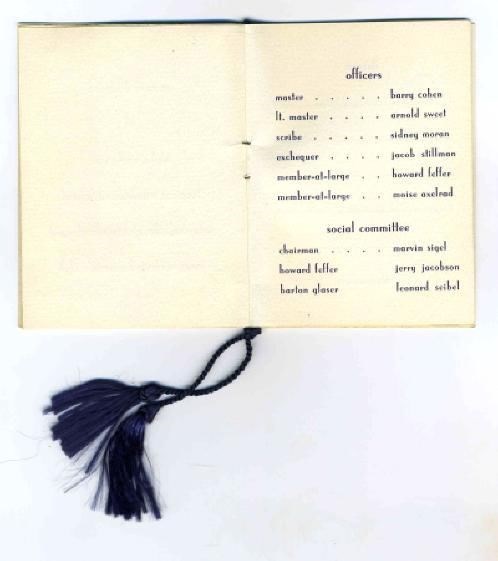 officers
master . . . . . barry cohen
lt. master . . . . arnold sweet
scribe . . . . . sidney moran
exchequer . . . . jacob stillman
member-at-large . . howard feffer
member-at-large . . moise axelrad
social committee
chairman . . . . marvin sigel
howard feffer jerry jacobson
barton glaser leonard seibel